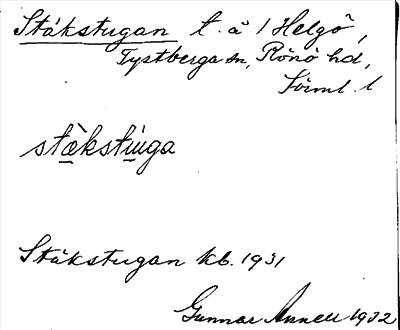 Stäkstugan t. å 1 Helgö,
Tystberga sn, Rönö hd,
Sörml. l
stæ̀kstuga
Stäkstugan kb. 1931
Gunnar Annell 1932